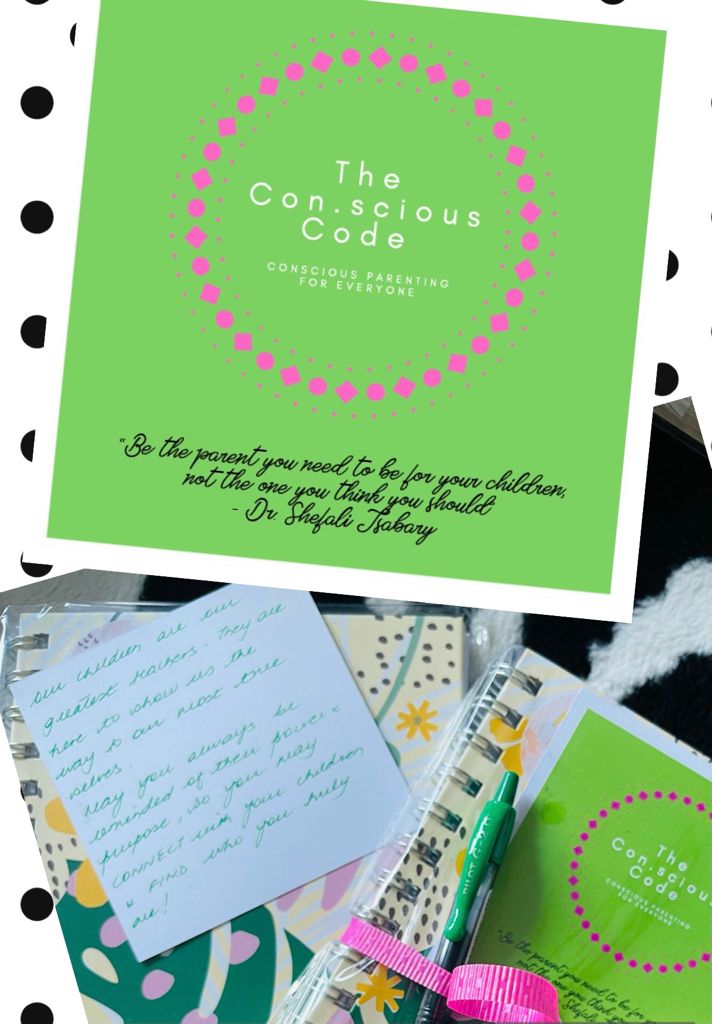 The
Con.scious
Code
CONSCIOUS PARENTING
FOR EVERYONE
"Be the parent you need to be for your children,
not the one you think you should"
- Dr. Shefali Tsabary
our children are our
greatest teachers - They are
here to show us the
way to our most true
selves.
May you always be
reminded of their power &
purpose, so you may
CONNECT with your children
& FIND who you truly
are!
The
Con.sciou
Code
CONSCIOUS PARENTING
FOR EVERYONE
"Be the parent you need to be for
not the one you think you
- Dr. Shefali